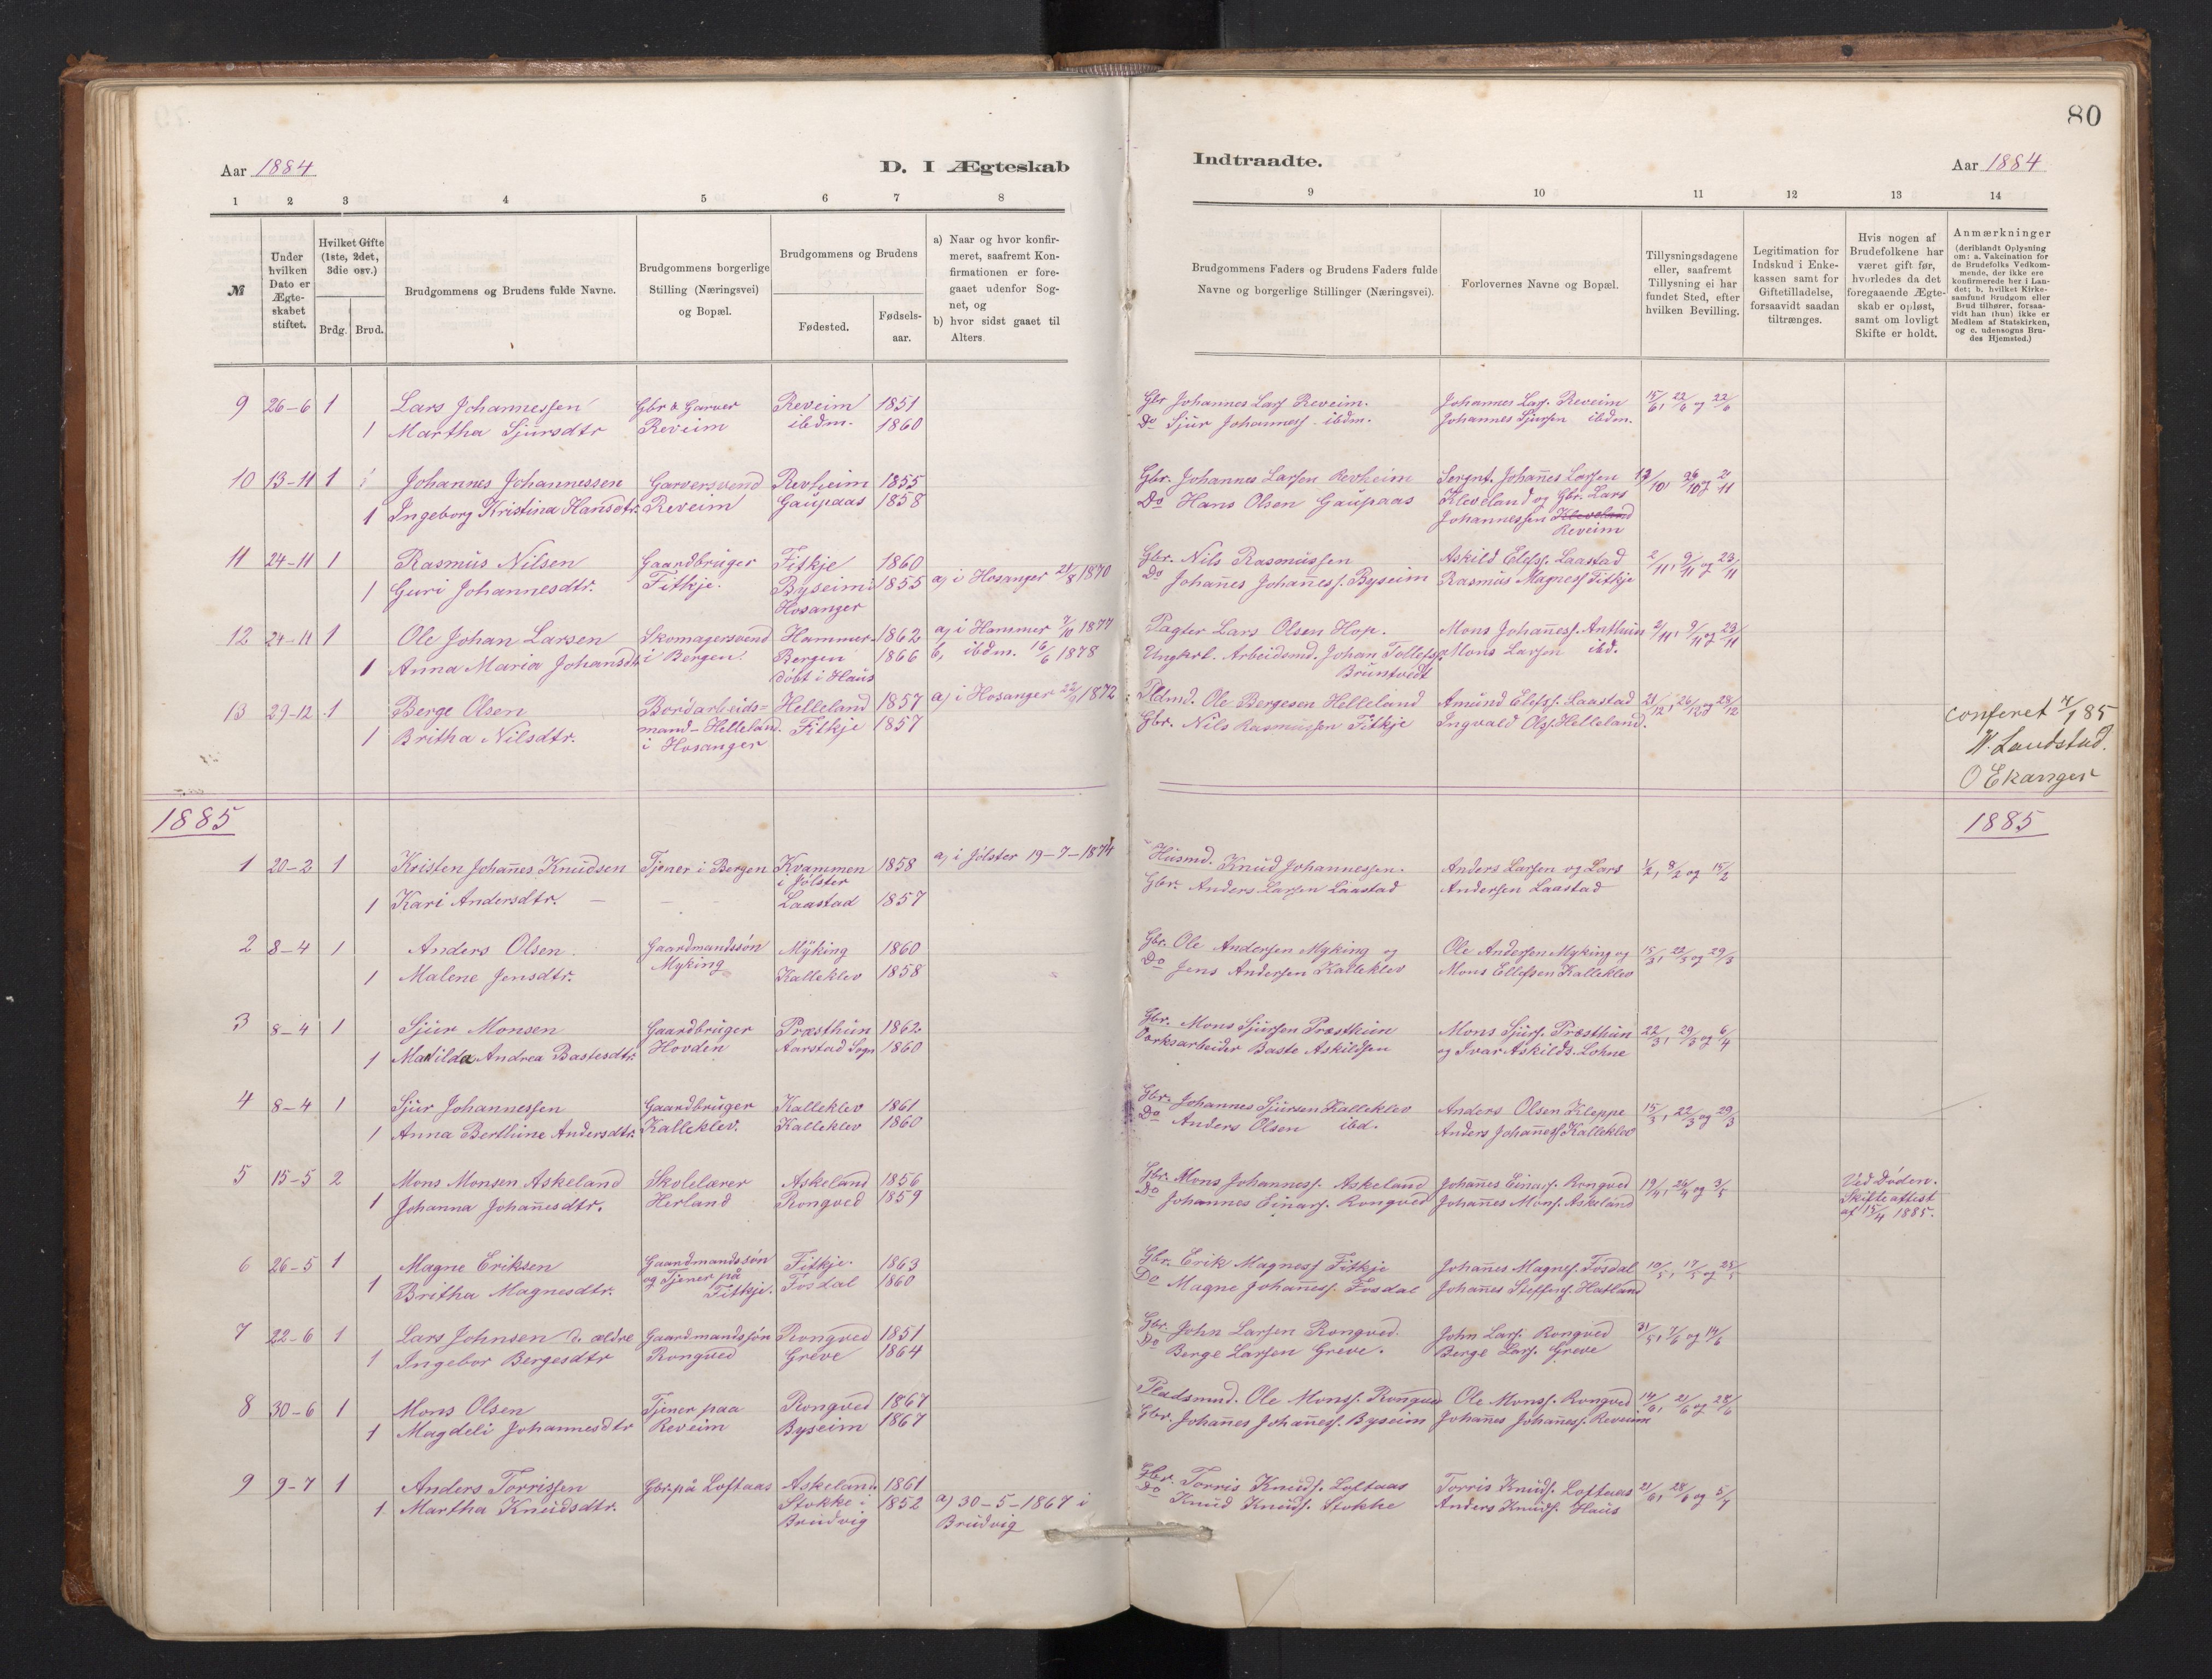 80
Aar 1884
D. I Ægteskab
Indtraadte.
Aar 1884
1 2 3 4 5 6 7 8
9 10 11 12 13 14
№
Under hvilken Dato er Ægte-skabet stiftet.
Hvilket Gifte (1ste, 2det, 3die osv.)
Brdg. Brud.
Brudgommens og Brudens fulde Navne.
Brudgommens borgerlige Stilling (Næringsvei) og Bopæl.
Brudgommens og Brudens
Fødested.
Fødsels-aar.
a) Naar og hvor konfir-meret, saafremt Kon-firmationen er fore-gaaet udenfor Sog-net, og
b) hvor sidst gaaet til Alters.
Brudgommens Faders og Brudens Faders fulde Navne og borgerlige Stillinger (Næringsvei).
Forlovernes Navne og Bopæl.
Tillysningsdagene eller, saafremt Tillysning ei har fundet Sted, efter hvilken Bevilling.
Legitimation for Indskud i Enke-kassen samt for Giftetilladelse, forsaavidt saadan tiltrænges.
Hvis nogen af Brudefolkene har været gift før, hvorledes da det foregaaende Ægte-skab er opløst, samt om lovligt Skifte er holdt.
Anmærkninger
(deriblandt Oplysning om: a. Vakcination for de Brudefolks Vedkom-mende, der ikke ere konfirmerede her i Lan-det; b. hvilket Kirke-samfund Brudgom eller Brud tilhører, forsaa-vidt han (hun) ikke er Medlem af Statskirken, og c. udensogns Bru-des Hjemsted.)
9 26-6 1 Lars Johannessen Gbr & Garver Reveim 1851 Gbr Johannes Lars. Reveim. Johannes Lars. Reveim 15/6, 22/6 og 22/6
1 Martha Sjursdtr Reveim ibdm. 1860 Do Sjur Johanness. ibdm. Johannes Sjursen ibdm.
10 13-11 1 Johannes Johannessen Garversvend Revheim 1855 Gbr. Johannes Larsen Revheim Sergnt. Johañes Larsen 19/10, 26/10 og 2/11
1 Ingeborg Kristina Hansdtr. Reveim Gaupaas 1858 Do Hans Olsen Gaupaas Kleveland og Gbr. Lars
Johannessen Kleveland
Reveim
11 24-11 1 Rasmus Nilsen Gaardbruger Fitkje 1860 Gbr. Nils Rasmussen Askild Elefss. Laastad 2/11, 9/11 og 23/11
1 Guri Johannesdtr. Fitkje. Byseim i 1855 a) i Hosanger 21/8 1870 Do Johañes Johañess. Byseim Rasmus Magness Fitkje
Hosanger
12 24-11 1 Ole Johan Larsen Skomagersvend Hammer 1862 a) i Hammer 7/10 1877 Pagter Lars Olsen Hop. Mons Johañess. Anthun 2/11, 9/11 og 23/11
1 Anna Maria Johansdtr i Bergen. Bergen 1866 b, ibdm. 16/6 1878 Ungkrl. Arbeidsmd. Johan Tollefs. Mons Larsen ibd.
døbt i Haus Bruntvedt
13 29-12 1 Berge Olsen Bordarbeids= Helleland 1857 a) i Hosanger 22/9 1872 Pldmd. Ole Bergesen Helleland Amund Elefss. Laastad 21/12, 26/12 og 28/12
1 Britha Nilsdtr. mand - Helleland Fitkje 1857 Gbr. Nils Rasmussen Fitkje Ingvald Ols. Helleland.
i Hosanger
conferet 7/1 85
W. Landstad.
O Ekanger
1885
1885
1 20-2 1 Kristen Johañes Knudsen Tjener i Bergen Kvammen 1858 a) i Jølster 19-7-1874 Husmd. Knud Johannessen. Anders Larsen og Lars 1/2, 8/2 og 15/2
i Jølster
1 Kari Andersdtr. - - - Laastad 1857 Gbr. Anders Larsen Laastad Andersen Laastad
2 8-4 1 Anders Olsen. Gaardmandssøn Myking 1860 Gbr. Ole Andersen Myking og Ole Andersen Myking og 15/3, 22/3 og 29/3
1 Malene Jensdtr. Myking Kalleklev 1858 Do Jens Andersen Kalleklev Mons Ellefsen Kalleklev
3 8-4 1 Sjur Monsen Gaardbruger Præsthun 1862 Gbr. Mons Sjursen Præsthun Mons Sjurs. Præsthun 22/3, 29/3 og 6/4
1 Matilda Andrea Bastesdtr. Hovden Aarstad Sogn 1860 Værksarbeider Baste Askildsen og Ivar Askilds. Lohne
4 8-4 1 Sjur Johannessen Gaardbruger Kalleklev 1861 Gbr. Johannes Sjursen Kalleklev Anders Olsen Kleppe 15/3, 22/3 og 29/3
1 Anna Berthine Andersdtr. Kalleklev. Kalleklev 1860 Do Anders Olsen ibd. Anders Johañess Kalleklev
5 15-5 2 Mons Monsen Askeland Skolelærer Askeland 1856 Gbr. Mons Johanness. Askeland Johañes Einars. Rongved 19/4, 26/4 og 3/5 Ved Døden.
1 Johanna Johañesdtr. Herland Rongved 1859 Do Johannes Einars. Rongved Johañes Mons. Askeland Skifteattest
af 15/4 1885.
6 26-5 1 Magne Eriksen Gaardmandssøn Fitkje. 1863 Gbr. Erik Magness Fitkje Johañes Magness. Fosdal 10/5, 17/5 og 25/5
1 Britha Magnesdtr. og Tjener på Fosdal 1860 Do Magne Johañess. Fosdal Johañes Steffens. Hatland
Fitkje.
7 22-6 1 Lars Johnsen d. ældre Gaardmandssøn Rongved 1851 Gbr. John Larsen Rongved. John Lars. Rongved 31/5, 7/6 og 14/6
1 Ingebor Bergesdtr Rongved Greve 1864 Do Berge Larsen Greve. Berge Lars. Greve
8 30-6 1 Mons Olsen Tjener paa Rongved 1867 Pladsmd. Ole Monss. Rongved Ole Monss. Rongved 14/6, 21/6 og 28/6
1 Magdeli Johannesdtr Reveim Byseim 1867 Gbr. Johañes Johañess. Byseim Johañes Johañess. Reveim
9 9-7 1 Anders Torrissen Gbr. på Loftaas Askeland 1861 Gbr. Torris Knuds. Loftaas Torris Knuds. Loftaas 21/6, 28/6 og 5/7
1. Martha Knudsdtr. Stokke i 1852 a) 30-5-1867 i Do Knud Knuds. Stokke Anders Knuds. Haus
Brudvig Brudvig